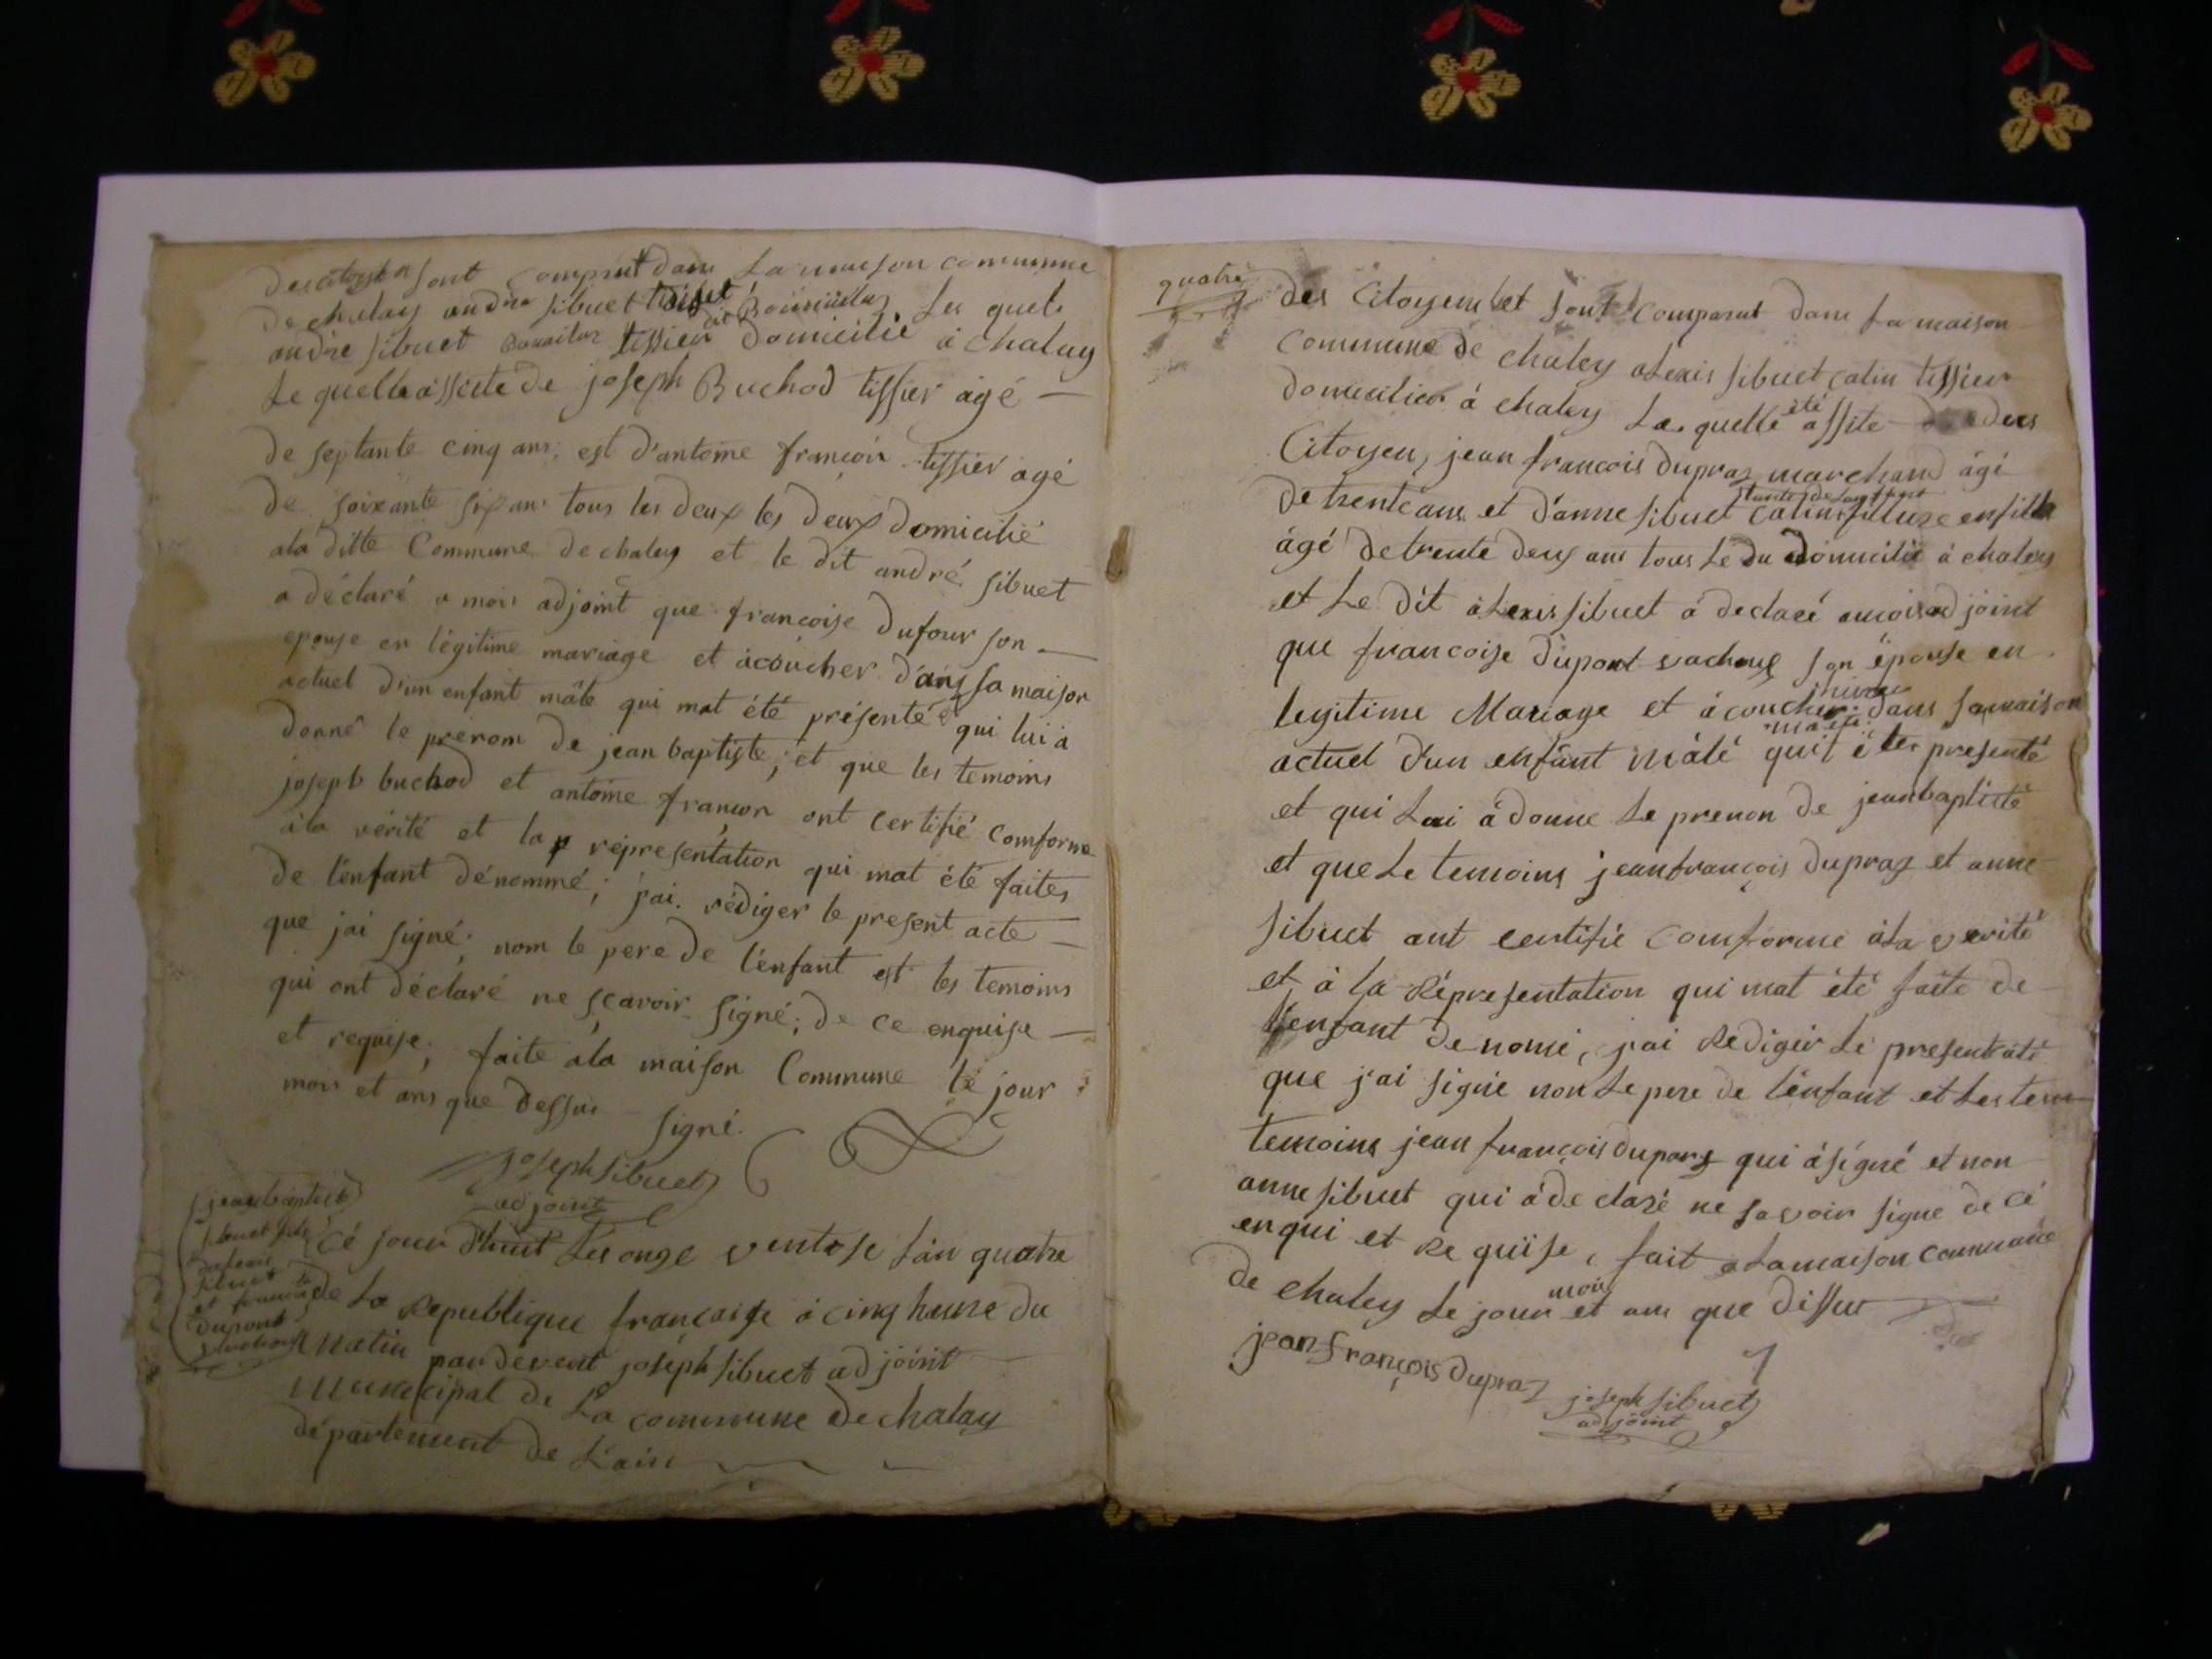 des citoyen sont comparut dans la maison commune
de chaley andre sibuet
andre sibuet tissier domicilié a chaley Les quels
Le quelle assiste de joseph Buchod tissier agé —
de septante cinq ans; est d'antoine françon tissier agé
de soixante six ans tous les deux les deux domicilié
ala ditte Commune de chaley et le dit andré sibuet
a déclaré a mois adjoint que françoise dufour son —
epouse en légitime mariage et acoucher dans sa maison
actuel d'un enfant mâle qui mat été présenté & qui lui a
donné le prenom de jean baptiste; et que les temoins
joseph buchod et antoine françon ont certifié comforme
ala vérité et la représentation qui mat été faites
de l'enfant dénommé; j'ai rédiger le present acte —
que jai signé; nom le pere de l'enfant est les temoins
qui ont déclaré ne sçavoir signé; de ce enquise —
et requise; faite ala maison Commune le jour
mois et ans que dessus signé.
joseph sibuet
adjoint
jeanbaptiste
sibuet fils
dalexis
sibuet
et françoise
dupont
vachoux
Cé jour d'huit Les onze ventose L'an quatre
de La Republique française a cinq heure du
matin pardevent joseph sibuet adjoint
municipal de La commune de chalay
département de L'ain
quatre
des Citoyens et sont comparut dans La maison
commune de chaley alexis sibuet catin tissier
domicilier à chaley Le quelle été assite de deus
Citoyen, jean francois dupraz marchand âgé
de trente ans et d'anne sibuet catin fileuze en fille
tante de Lanfant
âgé de trente deux ans tous Le du domicilié à chaley
et Le dit aLexis sibuet à declaré amois adjoint
que francoise dupont vachoux son épouse en
legitime Mariage et àcoucher dans sa maison
actuel d'un enfant mâlé quit éter presenté
et qui Lui à donne Le prenon de jeanbaptisté
et que Le temoins jeanfrançois dupraz et anne
sibuet ont certifié comforme àLa verité
et à la Répresentation qui mat été faite de
l'enfant denomé, j'ai Rediger Le present até
que j'ai signé non Le pere de l'énfant et Les tem
temoins jean françois dupraz qui àsigné et non
anne sibuet qui àdeclaré ne savoir signe de cé
enqui et Requise, fait aLamaison commune
de chaley Le jour mois et ans que dissus
jean françois dupraz
joseph sibuet
adjoint